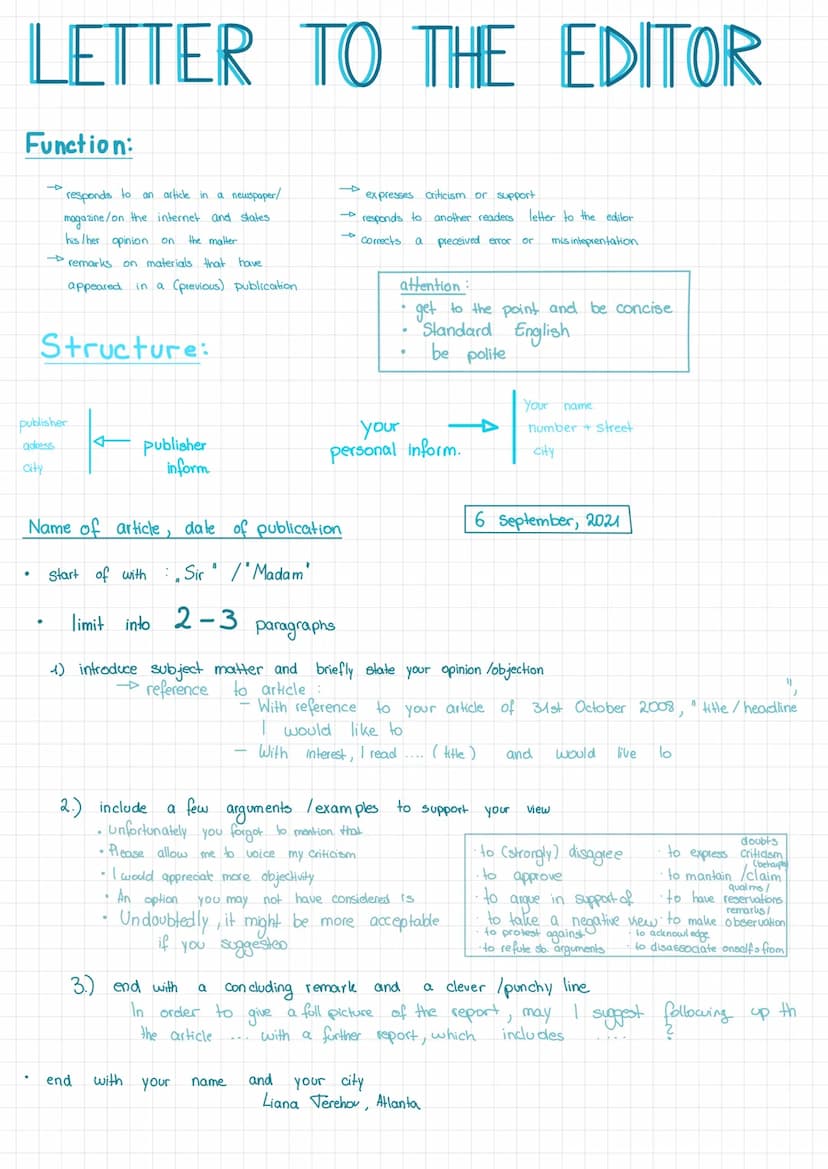 LETTER TO THE EDITOR
Function:
→ responds to an article in a newspaper/
magazine/on the internet and states
his/her opinion on the matter
→ remarks on materials that have
appeared in a (previous) publication
→ expresses criticism or support
→ responds to another readers letter to the editor
→ corrects a preceived error or misinterprentation
attention:
• get to the point and be concise
• Standard English
• be polite
Structure:
publisher
adress
city
← publisher
inform.
your →
personal inform.
your name
number + street
city
Name of article, date of publication
6 September, 2021
• start of with : „Sir" / "Madam"
• limit into 2-3 paragraphs
1) introduce subject matter and briefly state your opinion /objection
→ reference to article :
- With reference to your article of 31st October 2008, " title / headline ",
I would like to
- With interest, I read .... ( title ) and would live to
2.) include a few arguments /examples to support your view
• Unfortunately you forgot to mention that
• Please allow me to voice my criticism
• I would appreciate more objectivity
• An option you may not have considered is
• Undoubtedly, it might be more acceptable
if you suggested
· to (strongly) disagree
· to approve
· to argue in support of
· to take a negative view
· to protest against
· to refute sb. arguments
doubts
· to express criticism
· to mantain /claim
qualms /
· to have reservations
remarks /
· to make observation
· to acknowledge
· to disassociate onself from
3.) end with a concluding remark and a clever /punchy line
In order to give a full picture of the report, may I suggest following up th
the article ... with a further report, which includes .... ?
• end with your name and your city
Liana Terehov, Atlanta